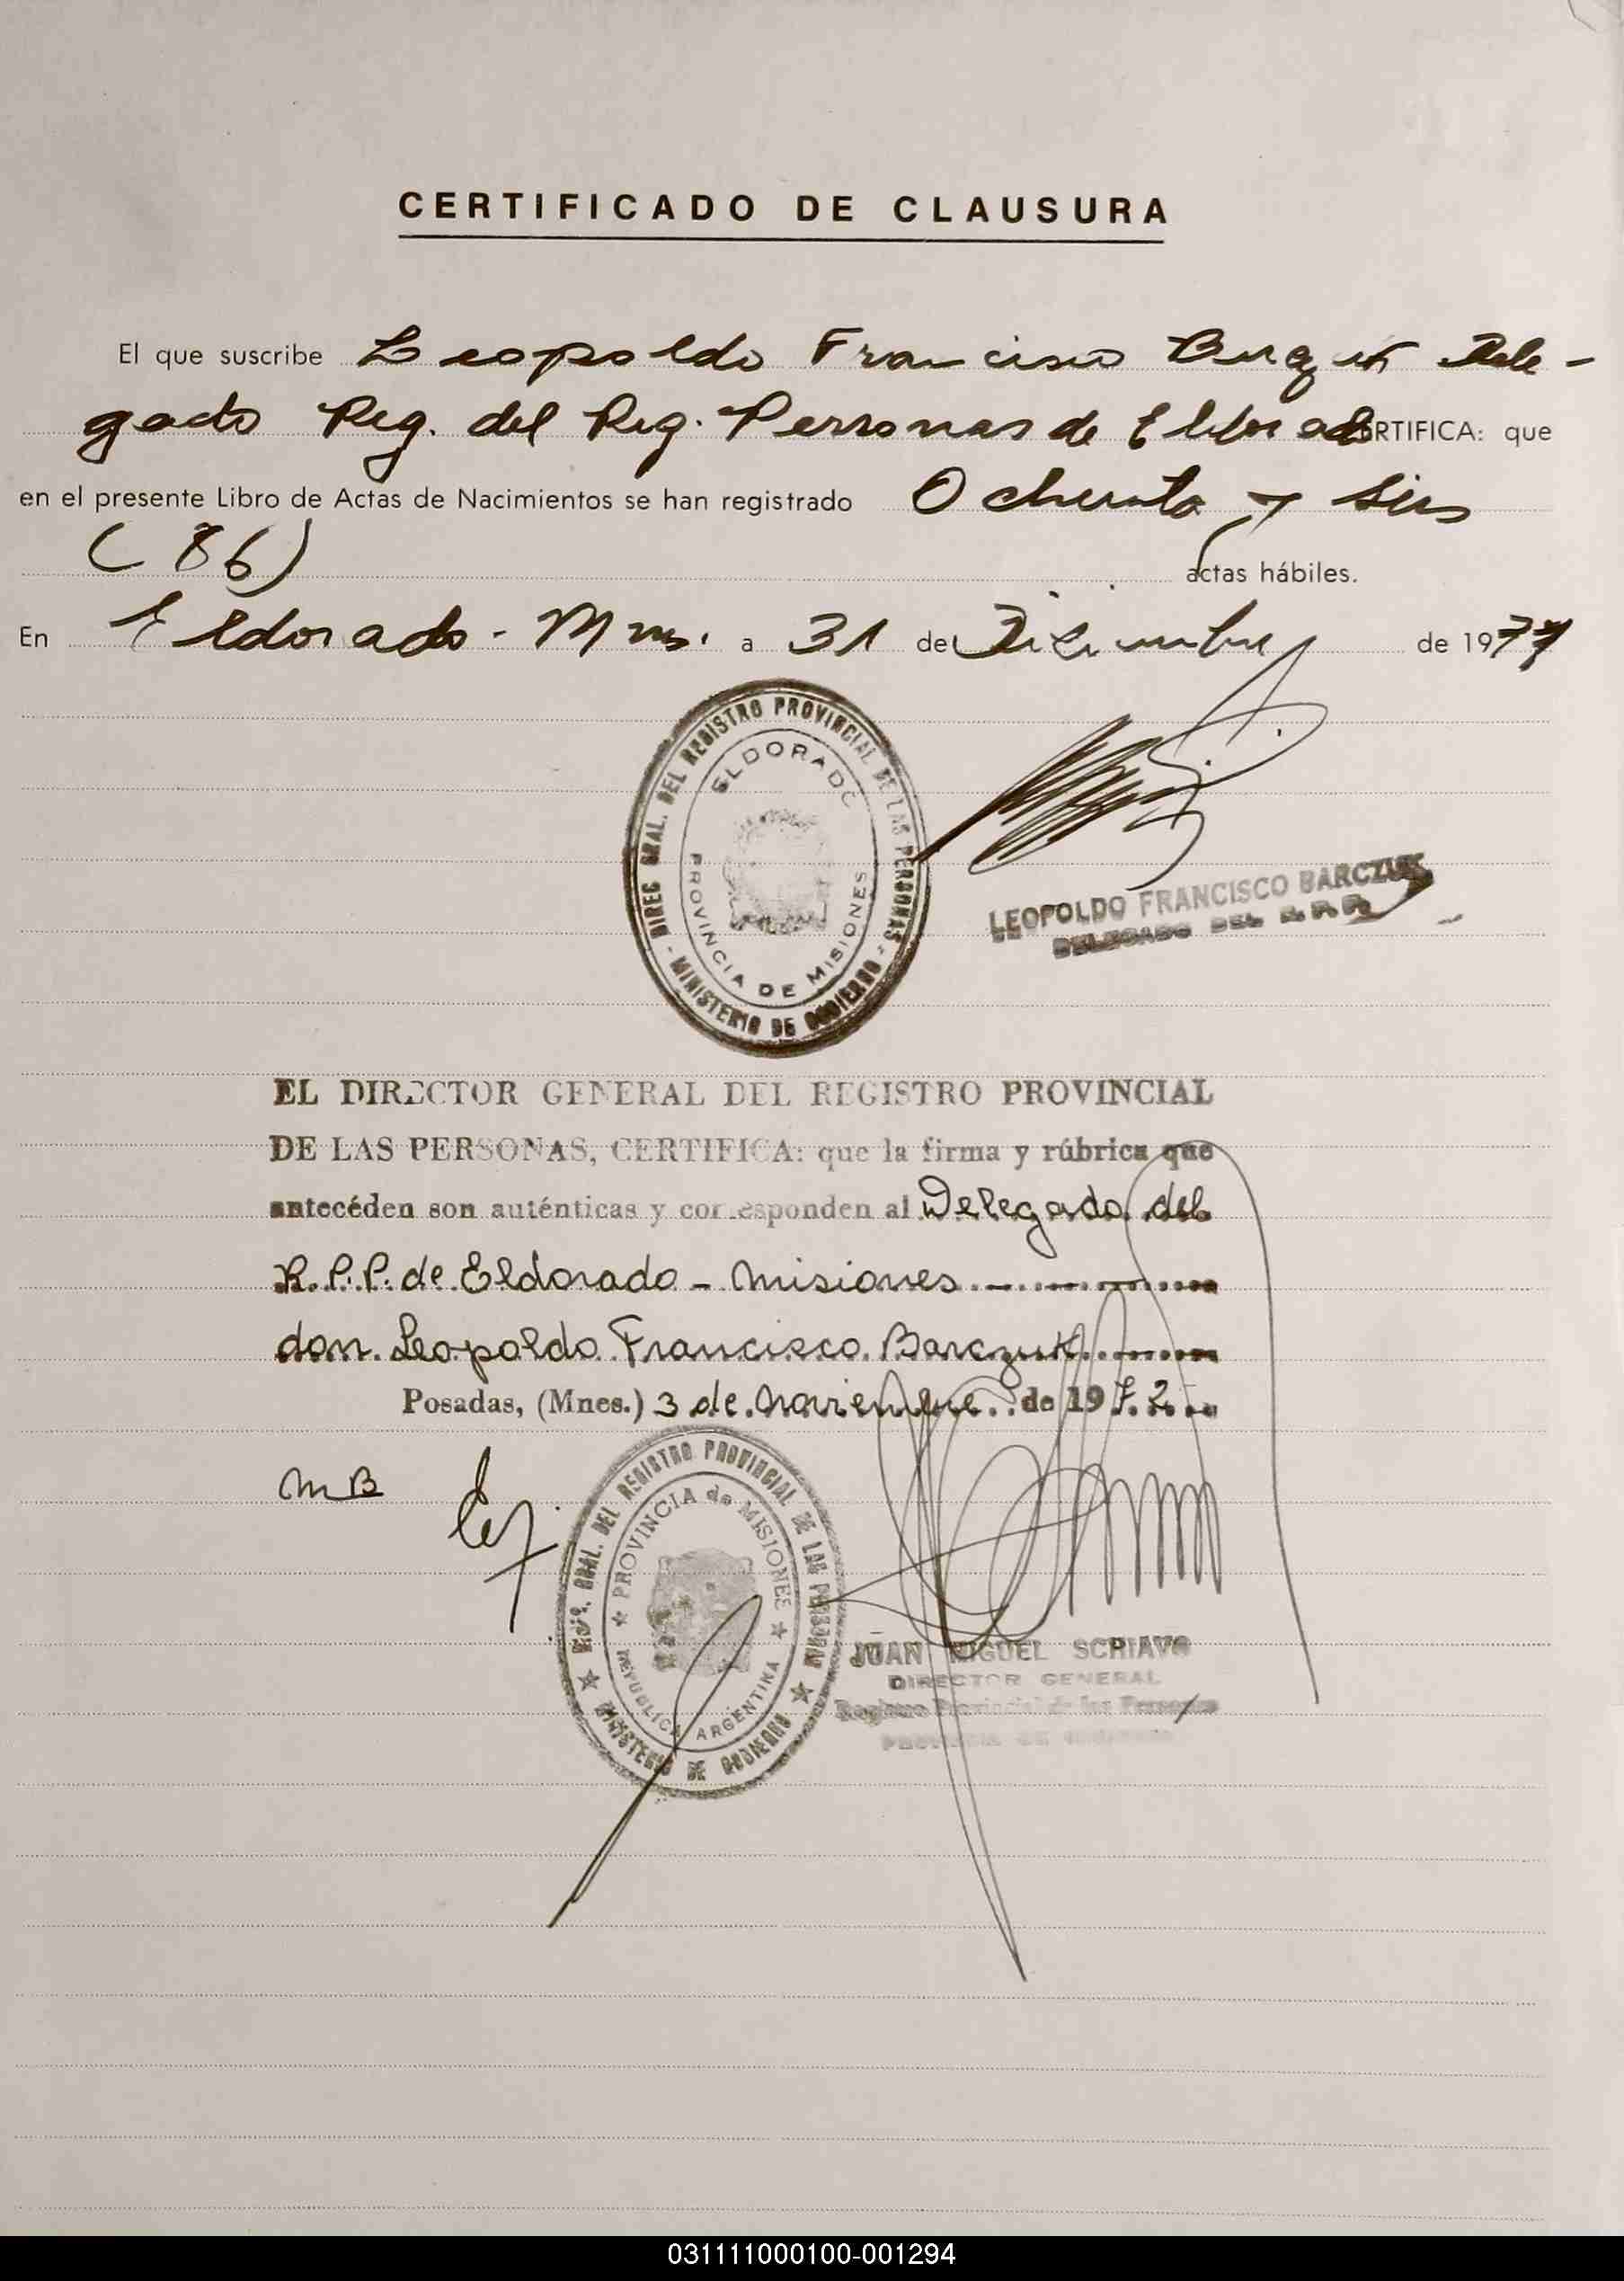 CERTIFICADO DE CLAUSURA
El que suscribe Leopoldo Francisco Dele-
gado Reg. del Reg. Personas de Eldorado CERTIFICA: que
en el presente Libro de Actas de Nacimientos se han registrado Ochenta y seis
(86) actas hábiles.
En Eldorado - Mnes. a 31 de Diciembre de 19
DIREC GRAL. DEL REGISTRO PROVINCIAL DE LAS PERSONAS
- MINISTERIO DE GOBIERNO -
ELDORADO
PROVINCIA DE MISIONES
LEOPOLDO FRANCISCO BARCZUK
DELEGADO DEL R.P.P.
EL DIRECTOR GENERAL DEL REGISTRO PROVINCIAL
DE LAS PERSONAS, CERTIFICA: que la firma y rúbrica que
antecéden son auténticas y corresponden al Delegado del
R.P.P. de Eldorado - Misiones.
don. Leopoldo Francisco Barczuk
Posadas, (Mnes.) 3 de noviembre de 1972
MB
GRAL. DEL REGISTRO PROVINCIAL DE LAS PERSONAS
MINISTERIO DE GOBIERNO
PROVINCIA de MISIONES
REPUBLICA ARGENTINA
JUAN MIGUEL SCRIAVO
DIRECTOR GENERAL
Registro Provincial de las Personas
PROVINCIA DE MISIONES
031111000100-001294